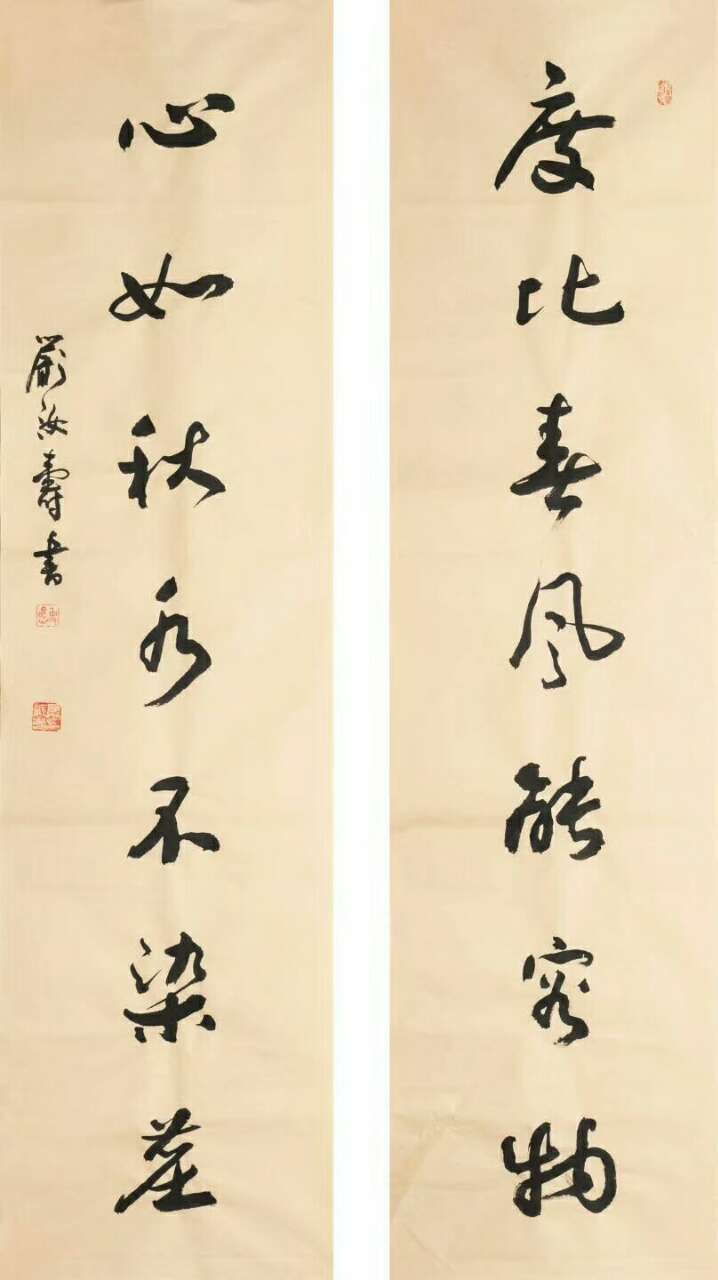 度比春风能容物
心如秋水不染尘
严汝寿书